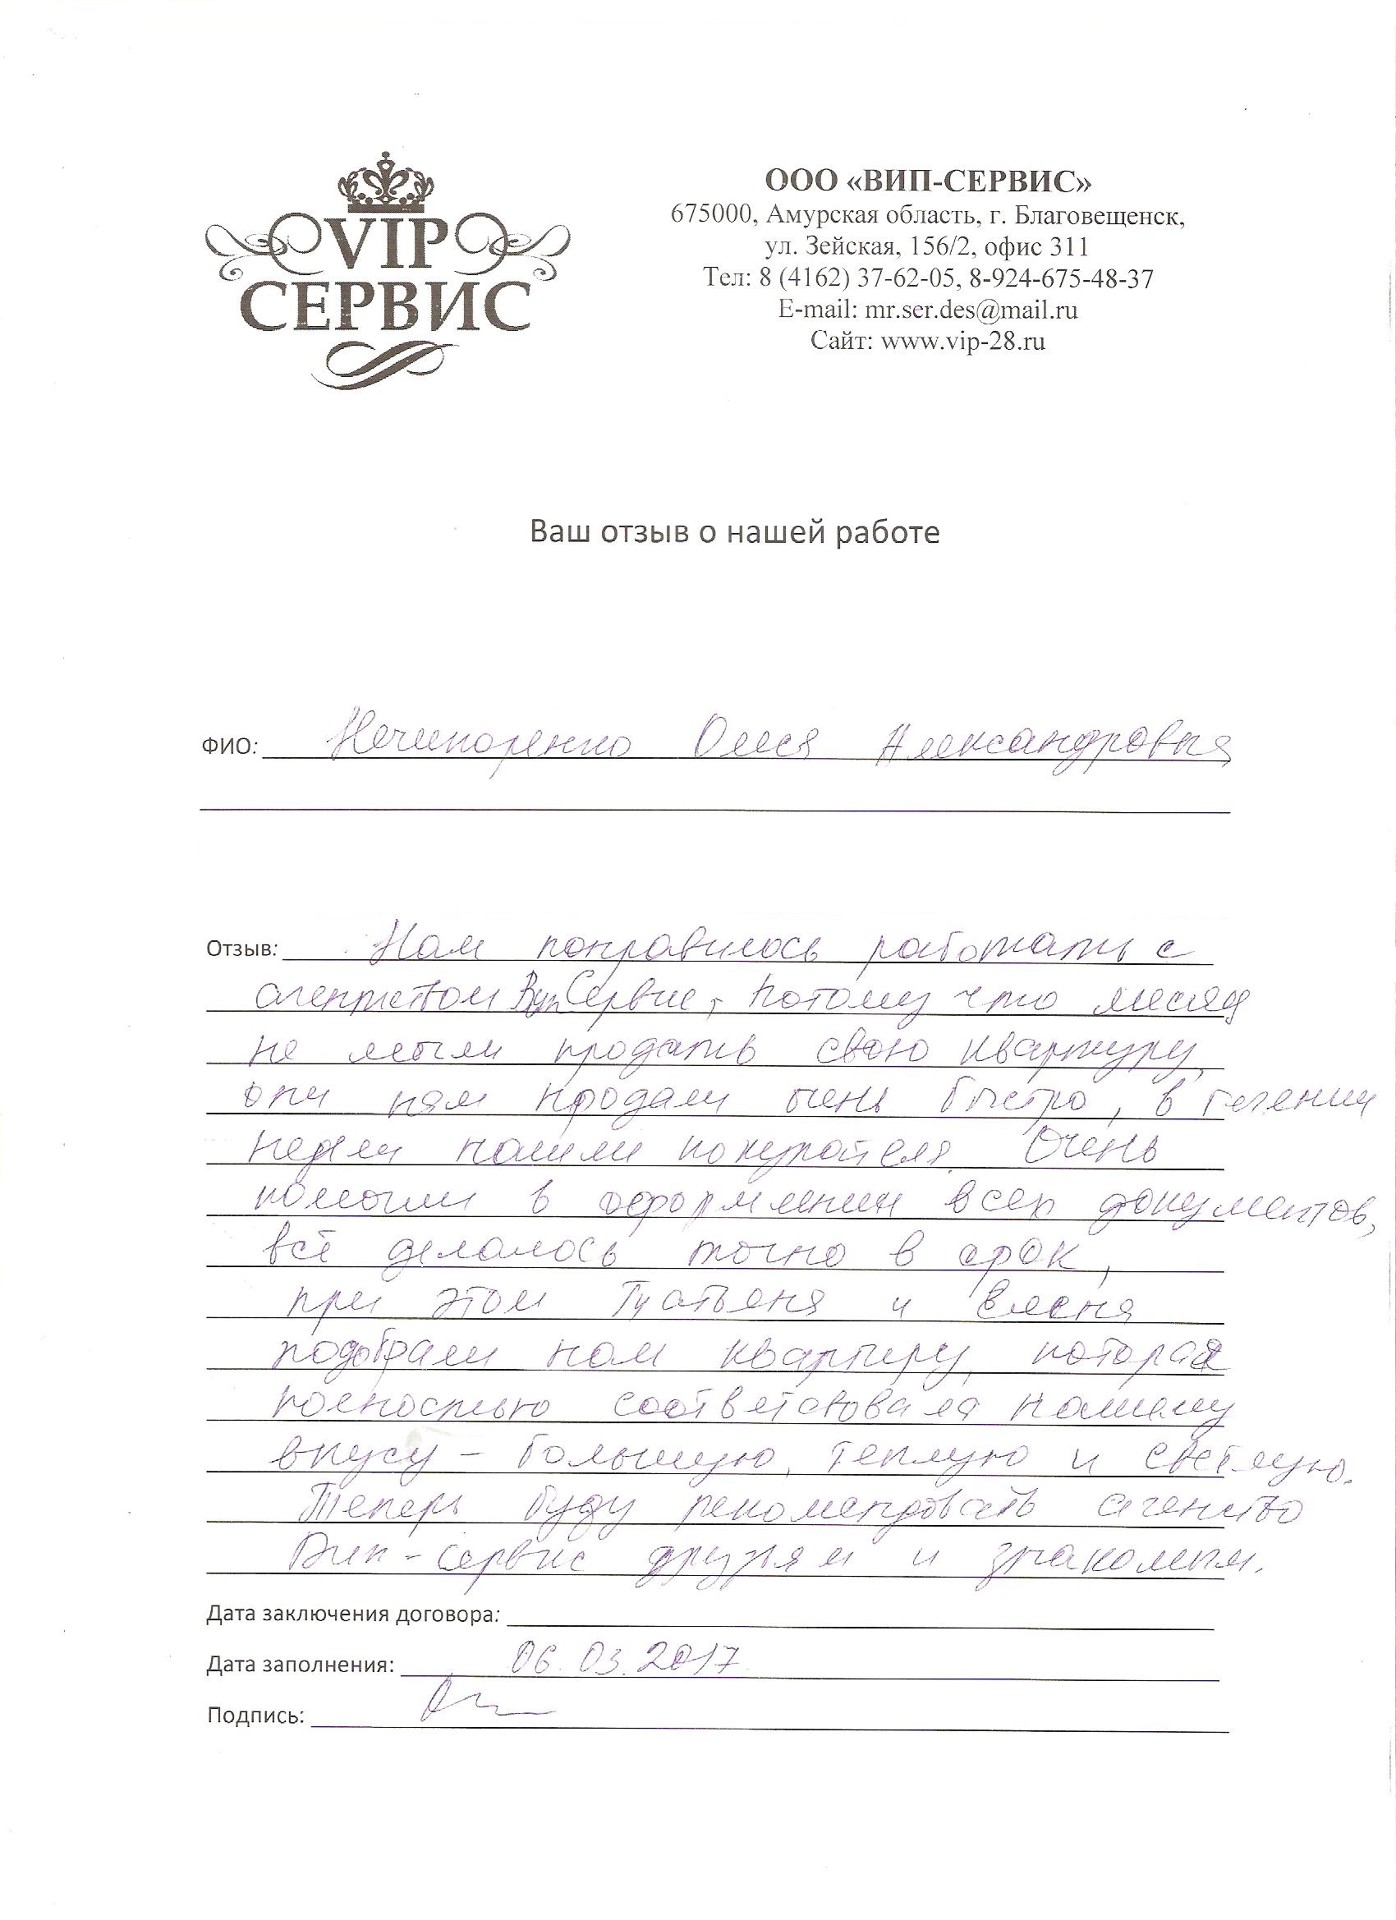 VIP
СЕРВИС
ООО «ВИП-СЕРВИС»
675000, Амурская область, г. Благовещенск,
ул. Зейская, 156/2, офис 311
Тел: 8 (4162) 37-62-05, 8-924-675-48-37
E-mail: mr.ser.des@mail.ru
Сайт: www.vip-28.ru
Ваш отзыв о нашей работе
ФИО: Нечипоренко Олеся Александровна
Отзыв: Нам понравилось работать с
агентством Вип Сервис, потому что месяц
не могли продать свою квартиру,
они нам продали очень быстро, в течении
недели нашли покупателя. Очень
помогли в оформлении всех документов,
всё делалось точно в срок,
при этом Татьяна и
подобрали нам квартиру, которая
полностью соответствовала нашему
вкусу - большую, теплую и светлую.
Теперь буду рекомендовать агенство
Вип-Сервис друзьям и знакомым.
Дата заключения договора:
Дата заполнения: 06.03.2017
Подпись: